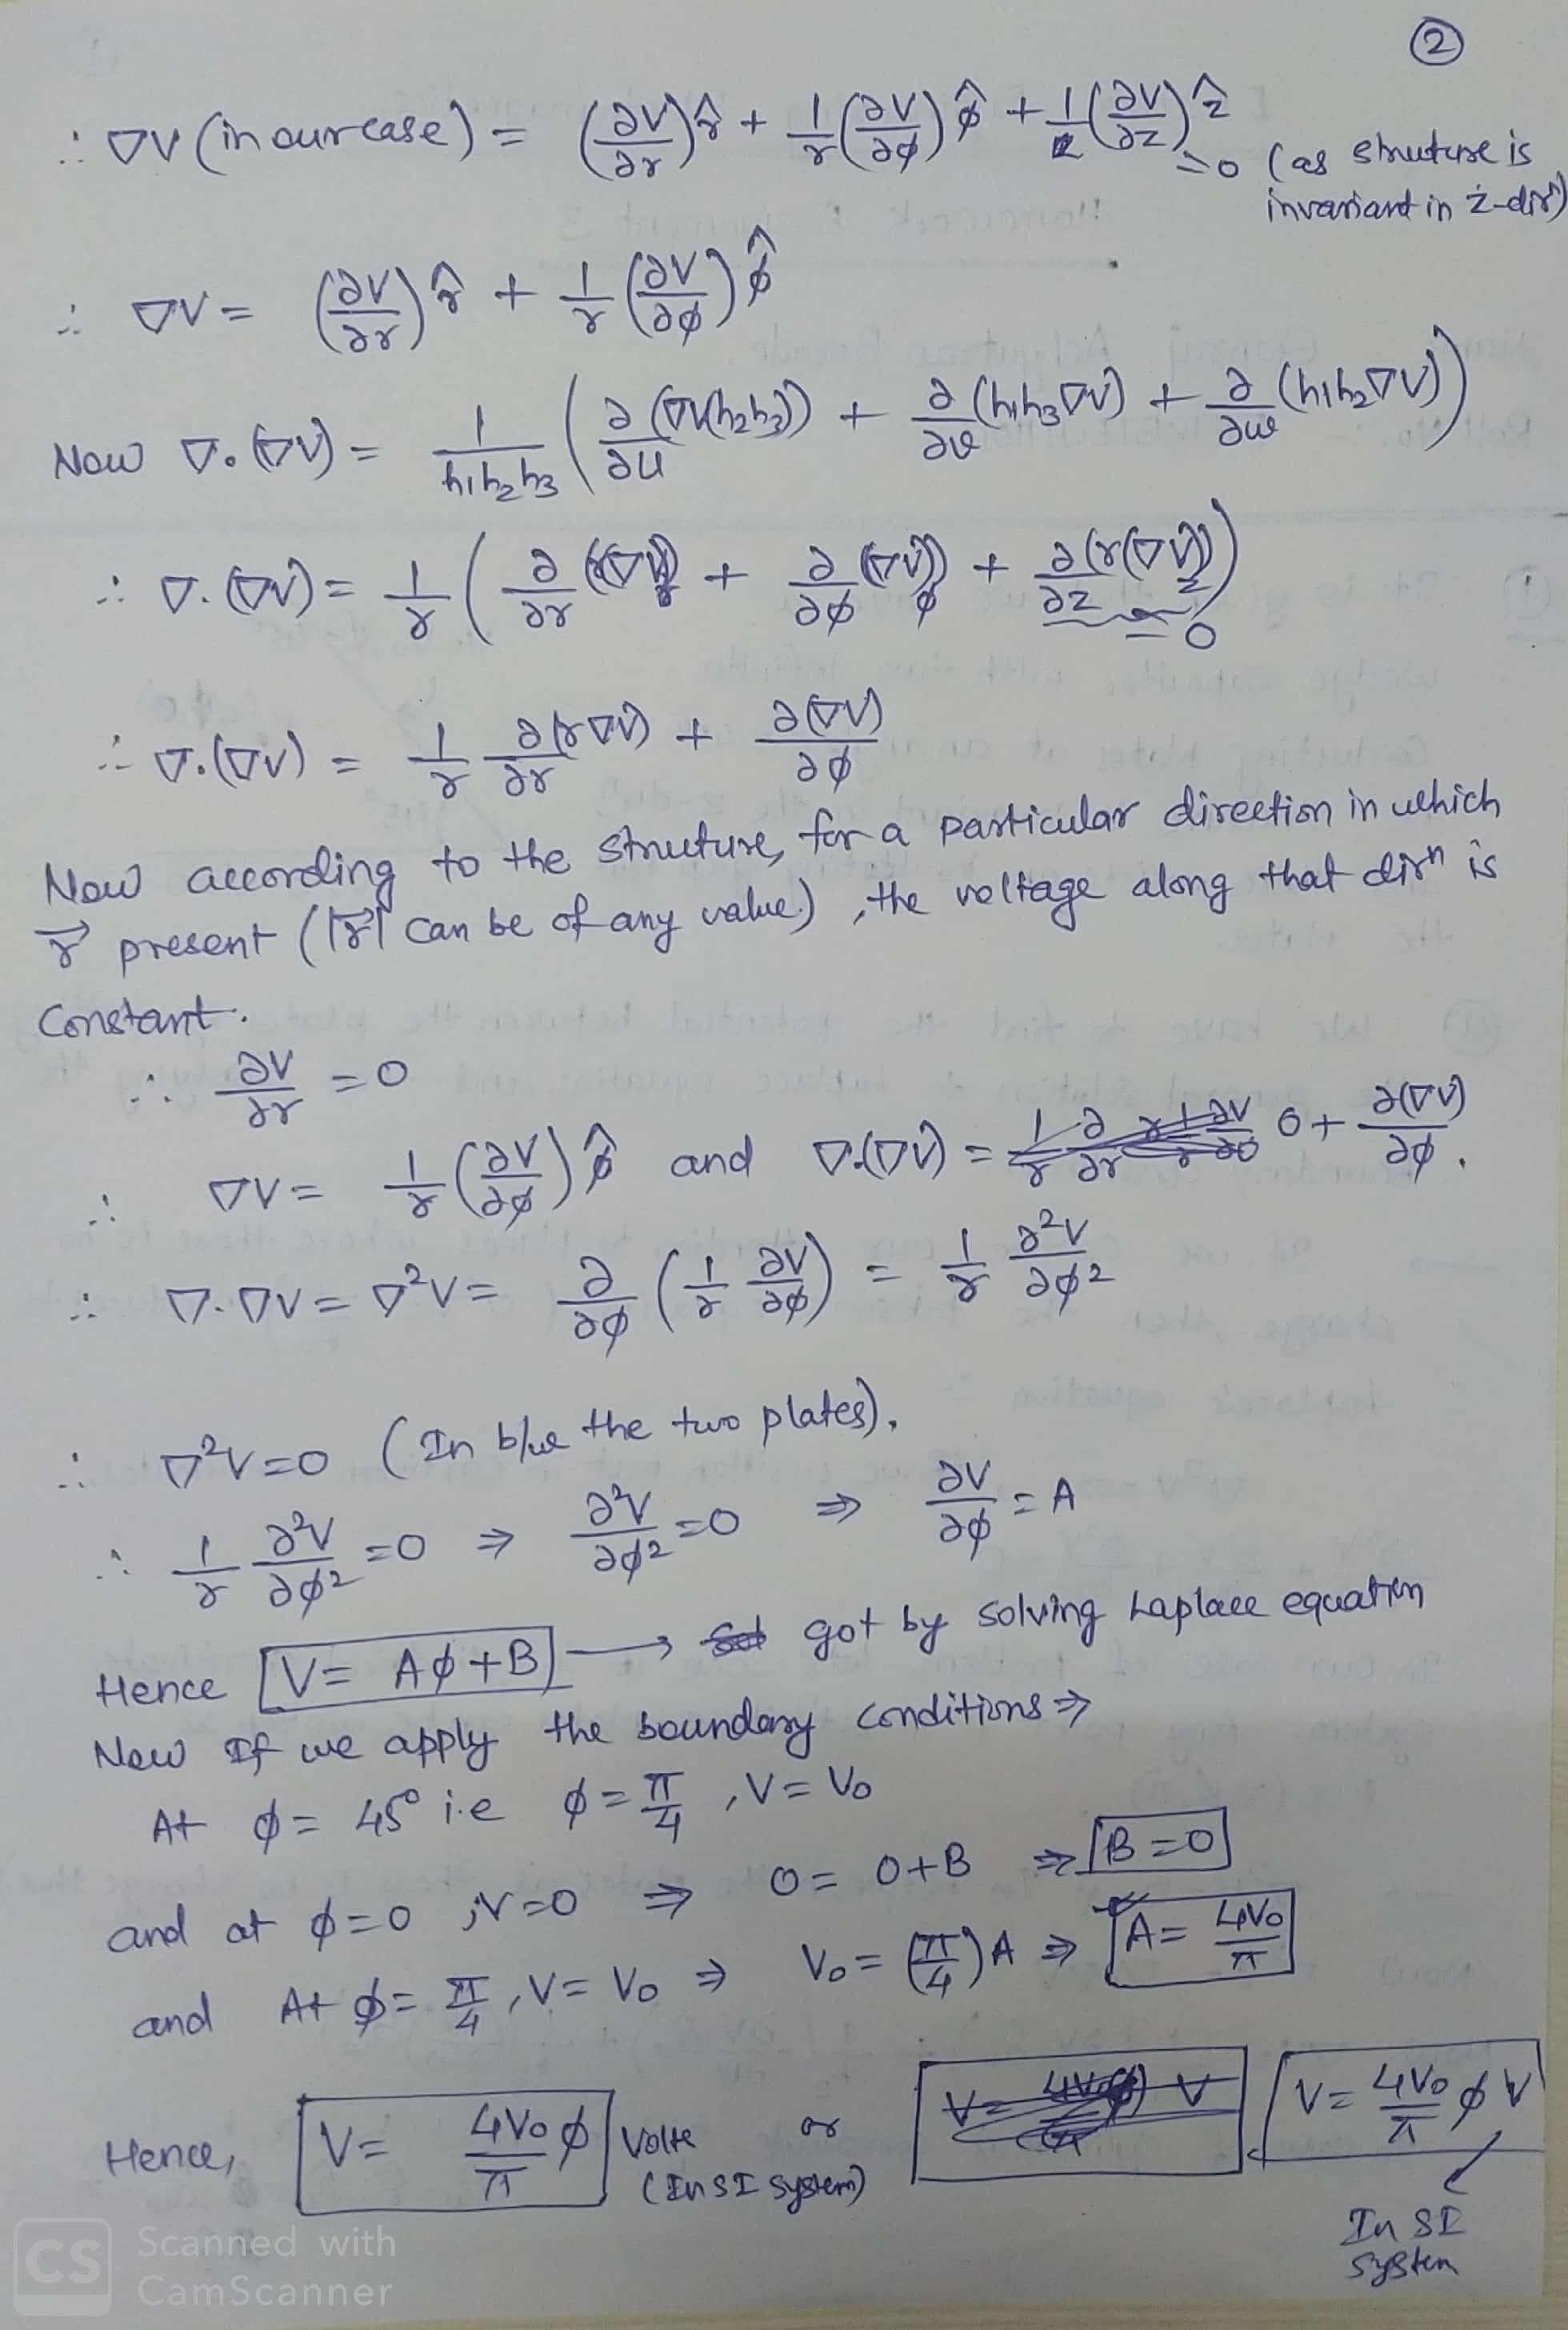 ②
∴ ∇V (in our case) = (∂V/∂r) r̂ + 1/r (∂V/∂φ) φ̂ + 1/1 (∂V/∂z) ẑ
=0 (as struture is
invariant in z-dirⁿ)
∴ ∇V = (∂V/∂r) r̂ + 1/r (∂V/∂φ) φ̂
Now ∇.(∇V) = 1/(h1h2h3) ( ∂/∂u (∇V(h2h3)) + ∂/∂v (h1h3∇V) + ∂/∂w (h1h2∇V) )
∴ ∇.(∇V) = 1/r ( ∂/∂r (r(∇V))r + ∂/∂φ (∇V)φ + ∂(r(∇V)z)/∂z )
=0
∴ ∇.(∇V) = 1/r ∂(r∇V)/∂r + ∂(∇V)/∂φ
Now according to the struture, for a particular direction in which
r⃗ present (|r⃗| can be of any value.) , the voltage along that dirⁿ is
constant.
∴ ∂V/∂r = 0
∴ ∇V = 1/r (∂V/∂φ) φ̂ and ∇.(∇V) = 0 + ∂(∇V)/∂φ .
∴ ∇.∇V = ∇²V = ∂/∂φ (1/r ∂V/∂φ) = 1/r ∂²V/∂φ²
∴ ∇²V=0 (In b/w the two plates).
∴ 1/r ∂²V/∂φ² =0 ⇒ ∂²V/∂φ² =0 ⇒ ∂V/∂φ = A
Hence V= Aφ+B → got by solving Laplace equation
Now If we apply the boundary conditions ⇒
At φ= 45° i.e φ= π/4 , V= V₀
and at φ=0 , V=0 ⇒ 0= 0+B ⇒ B=0
and At φ= π/4 , V= V₀ ⇒ V₀= (π/4)A ⇒ A= 4V₀/π
Hence, V= 4V₀/π φ Volts or V= 4V₀/π φ V
(In SI system)
In SI
system
CS Scanned with
CamScanner